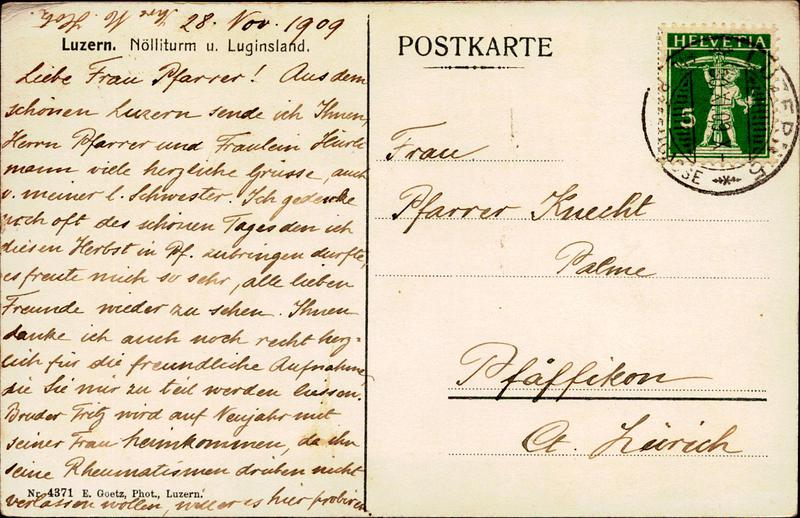 28. Nov. 1909
Luzern. Nölliturm u. Luginsland.
Liebe Frau Pfarrer! Aus dem
schönen Luzern sende ich Ihnen,
Herrn Pfarrer und Fräulein Hürli
mann viele herzliche Grüsse, auch
v. meiner l. Schwester. Ich gedenke
noch oft des schönen Tages den ich
diesen Herbst in Pf. zubringen durfte,
es freute mich so sehr, alle lieben
Freunde wieder zu sehen. Ihnen
danke ich auch noch recht herz-
lich für die freundliche Aufnahme,
die Sie mir zu teil werden liessen.
Bruder Fritz wird auf Neujahr mit
seiner Frau heimkommen, da ihn
seine Rheumatismen drüben nicht
verlassen wollen, will er es hier probiren
Nr. 4371 E. Goetz, Phot., Luzern.
POSTKARTE
HELVETIA
5
LUZERN
Frau
Pfarrer Knecht
Palme
Pfäffikon
Ct. Zürich